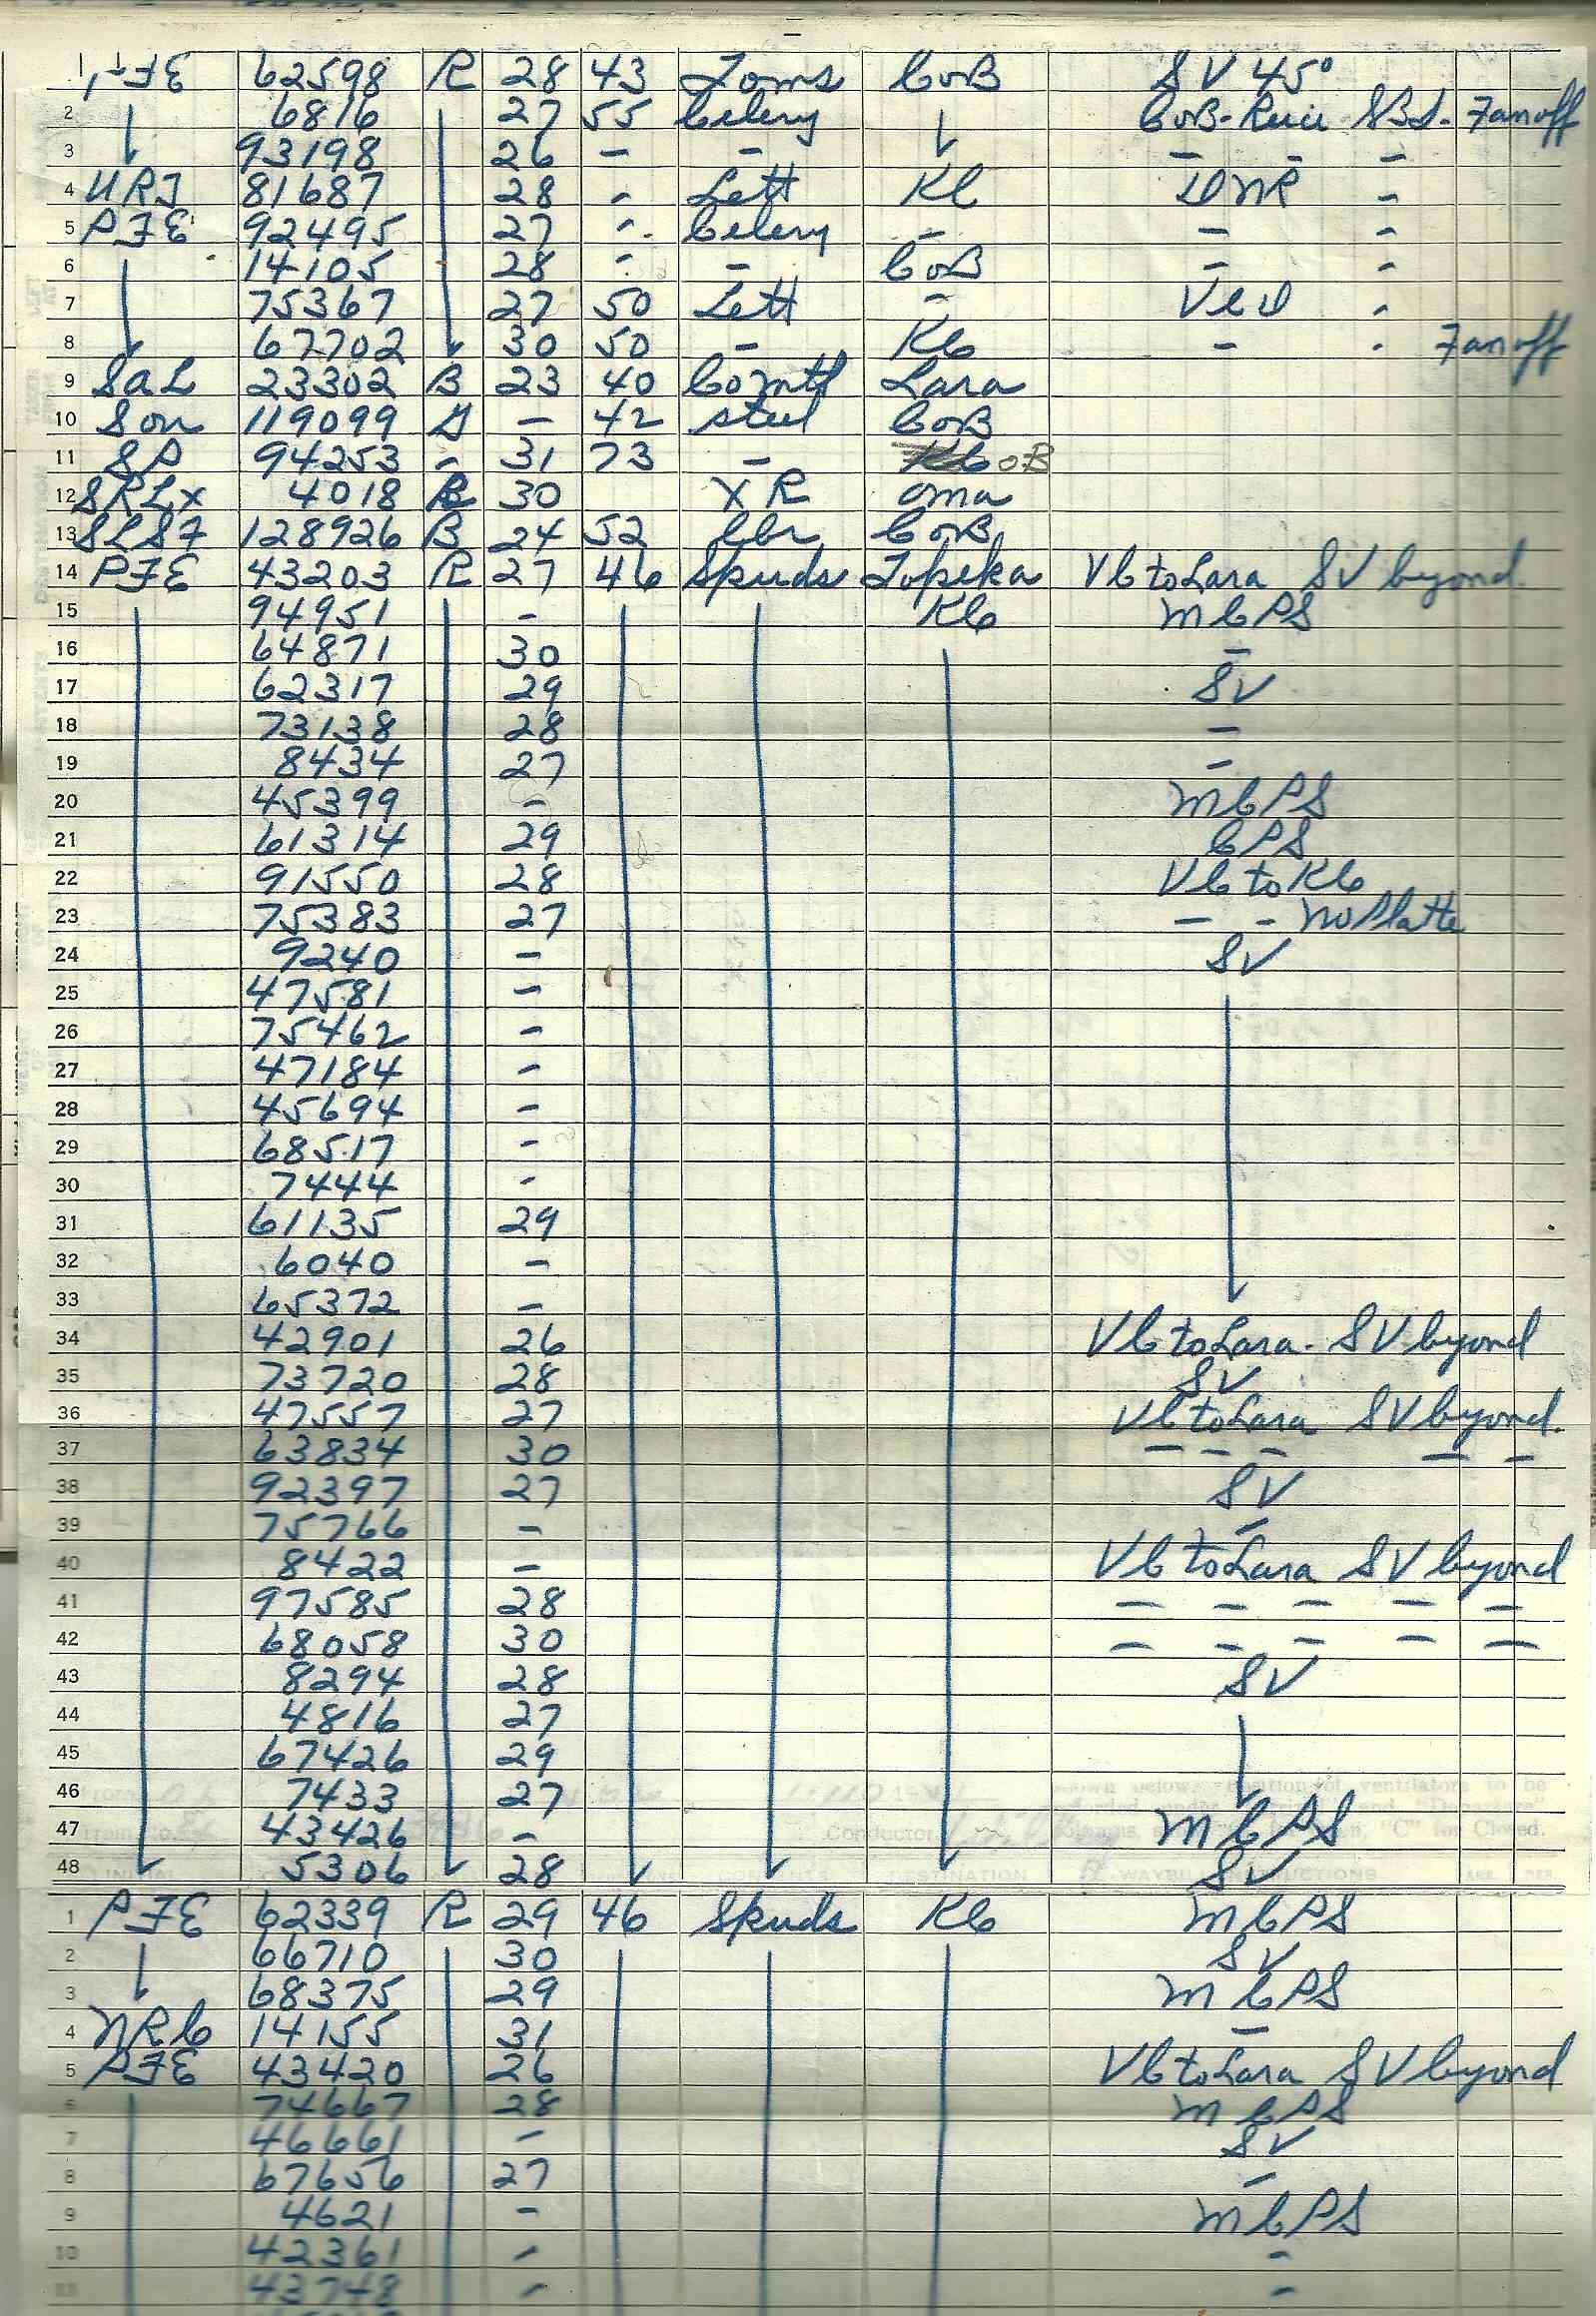 1 PFE 62598 R 28 43 Toms CoB SV 45°
2 6816 27 55 Celery CoB-Reice SBS. Fan off
3 93198 26 - - - - -
4 URT 81687 28 - Lett KC DNR -
5 PFE 92495 27 - Celery - - -
6 14105 28 - - CoB - -
7 75367 27 50 Lett - VCD -
8 67702 30 50 - KC - - Fan off
9 SAL 23302 B 23 40 Lara
10 Sou 119099 G - 42 steel CoB
11 SP 94253 - 31 73 - CoB
12 SRLX 4018 B 30 XR Oma
13 SLSF 128926 B 24 52 lbr CoB
14 PFE 43203 R 27 46 Spuds Topeka VC to Lara SV beyond.
15 94951 - KC MCPS
16 64871 30 -
17 62317 29 SV
18 73138 28 -
19 8434 27 -
20 45399 - MCPS
21 61314 29 CPS
22 91550 28 VC to KC
23 75383 27 - - No Platte
24 9240 - SV
25 47581 -
26 75462 -
27 47184 -
28 45694 -
29 68517 -
30 7444 -
31 61135 29
32 6040 -
33 65372 -
34 42901 26 VC to Lara. SV beyond
35 73720 28 SV
36 47557 27 VC to Lara SV beyond.
37 63834 30 - - - - -
38 92397 27 SV
39 75766 - -
40 8422 - VC to Lara SV beyond
41 97585 28 - - - - -
42 68058 30 - - - - -
43 8294 28 SV
44 4816 27
45 67426 29
46 7433 27
47 43426 - MCPS
48 5306 28 SV
1 PFE 62339 R 29 46 Spuds KC MCPS
2 66710 30 SV
3 68375 29 MCPS
4 NRC 14155 31 -
5 PFE 43420 26 VC to Lara SV beyond
6 74667 28 MCPS
7 46661 - SV
8 67656 27 -
9 4621 - MCPS
10 42361 - -
43748 - -